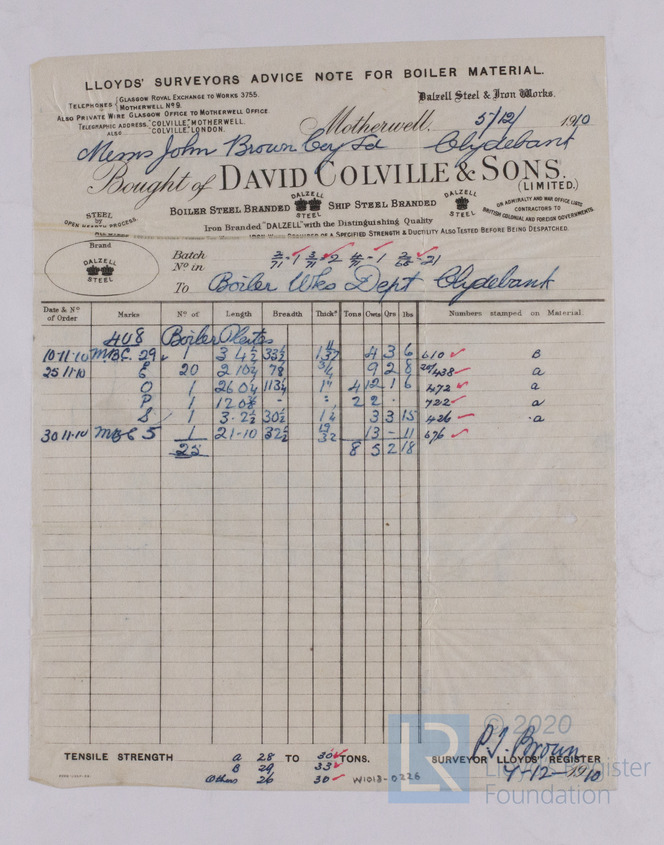 LLOYDS' SURVEYORS ADVICE NOTE FOR BOILER MATERIAL.
TELEPHONES { GLASGOW ROYAL EXCHANGE TO WORKS 3755.
MOTHERWELL Nº 9.
Dalzell Steel & Iron Works.
ALSO PRIVATE WIRE GLASGOW OFFICE TO MOTHERWELL OFFICE.
TELEGRAPHIC ADDRESS, "COLVILLE," MOTHERWELL.
ALSO "COLVILLE," LONDON.
Motherwell, 5/12/ 1910
Messrs John Brown Coy Ld Clydebank
Bought of DAVID COLVILLE & SONS.
(LIMITED.)
BOILER STEEL BRANDED DALZELL STEEL SHIP STEEL BRANDED DALZELL STEEL
ON ADMIRALTY AND WAR OFFICE LISTS
CONTRACTORS TO
BRITISH COLONIAL AND FOREIGN GOVERNMENTS.
STEEL
by
OPEN HEARTH PROCESS.
Iron Branded "DALZELL" with the Distinguishing Quality
OF A SPECIFIED STRENGTH & DUCTILITY ALSO TESTED BEFORE BEING DESPATCHED.
Brand
DALZELL
STEEL
Batch
Nº in
To Boiler Wks Dept Clydebank
Date & Nº of Order Marks Nº of Length Breadth Thickº Tons Cwts Qrs lbs Numbers stamped on Material.
408 Boiler Plates
10 11 10 MBC. 29 1 3 4½ 33½ 4 3 6 610 B
25 11 10 E 20 2 10¼ 78 ¾ 9 2 8 438 a
O 1 26 0¼ 113¼ 1" 4 12 1 6 472 a
P 1 12 0⅜ - " 2 2 - 722 a
S 1 3 - 2½ 30½ 1¼ 3 3 15 426 a
30 11 10 MBC 5 1 21 - 10 32½ 19/32 13 - 11 676
25 8 5 2 18
TENSILE STRENGTH a 28 TO 30 TONS.
B 29 33
Others 26 30
W1013-0226
P.J. Brown
SURVEYOR LLOYDS' REGISTER
7-12-1910
LR © 2020
Lloyd's Register
Foundation